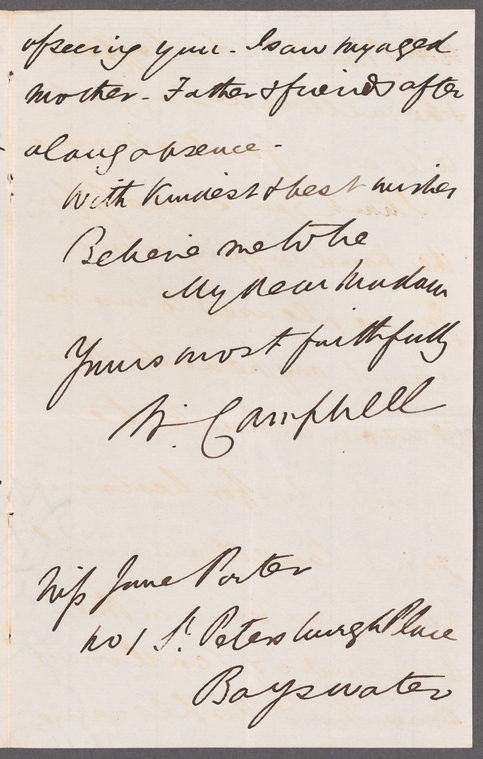 of seeing you - I saw my aged
mother - Father & friends after
a long absence -
With Kindest & best wishes
Believe me to be
My Dear Madam
Yours most faithfully
Campbell
Miss Jane Porter
No 1 St. Petersburgh Place
Bayswater